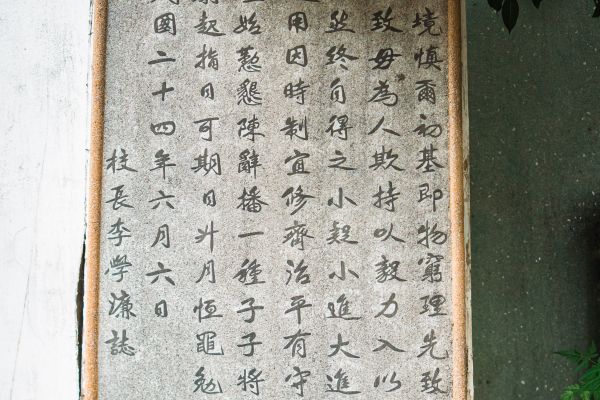 境慎爾初基即物窮理先致
致毋為人欺持以毅力入以
然終自得之小疑小進大進
用因時制宜修齊治平有守
始懃懇陳辭播一種子子將
起指日可期日升月恒黽勉
國二十四年六月六日
校長李學濂誌